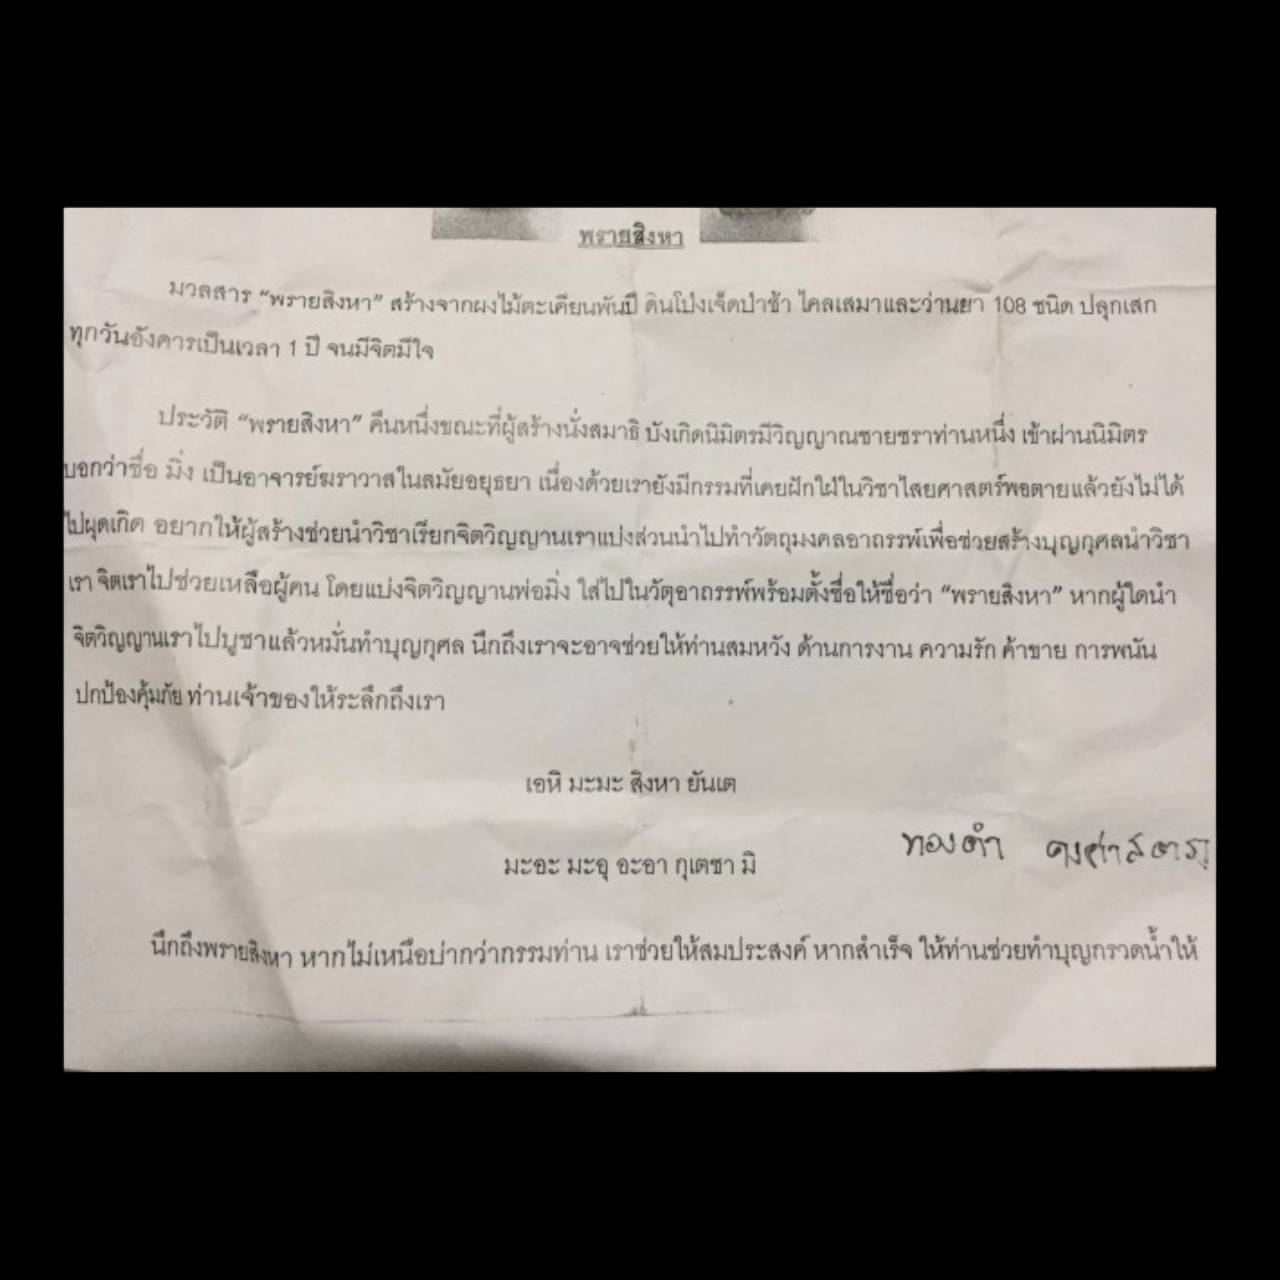 พรายสิงหา
มวลสาร “พรายสิงหา” สร้างจากผงไม้ตะเคียนพันปี ดินโป่งเจ็ดป่าช้า ไคลเสมาและว่านยา 108 ชนิด ปลุกเสก
ทุกวันอังคารเป็นเวลา 1 ปี จนมีจิตมีใจ
ประวัติ “พรายสิงหา” คืนหนึ่งขณะที่ผู้สร้างนั่งสมาธิ บังเกิดนิมิตรมีวิญญาณชายชราท่านหนึ่ง เข้าผ่านนิมิตร
บอกว่าชื่อ มิ่ง เป็นอาจารย์ฆราวาสในสมัยอยุธยา เนื่องด้วยเรายังมีกรรมที่เคยฝักใฝ่ในวิชาไสยศาสตร์พอตายแล้วยังไม่ได้
ไปผุดเกิด อยากให้ผู้สร้างช่วยนำวิชาเรียกจิตวิญญานเราแบ่งส่วนนำไปทำวัตถุมงคลอาถรรพ์เพื่อช่วยสร้างบุญกุศลนำวิชา
เรา จิตเราไปช่วยเหลือผู้คน โดยแบ่งจิตวิญญานพ่อมิ่ง ใส่ไปในวัตุอาถรรพ์พร้อมตั้งชื่อให้ชื่อว่า “พรายสิงหา” หากผู้ใดนำ
จิตวิญญานเราไปบูชาแล้วหมั่นทำบุญกุศล นึกถึงเราจะอาจช่วยให้ท่านสมหวัง ด้านการงาน ความรัก ค้าขาย การพนัน
ปกป้องคุ้มภัย ท่านเจ้าของให้ระลึกถึงเรา
เอหิ มะมะ สิงหา ยันเต
มะอะ มะอุ อะอา กุเตชา มิ
ทองดำ
นึกถึงพรายสิงหา หากไม่เหนือบ่ากว่ากรรมท่าน เราช่วยให้สมประสงค์ หากสำเร็จ ให้ท่านช่วยทำบุญกรวดน้ำให้